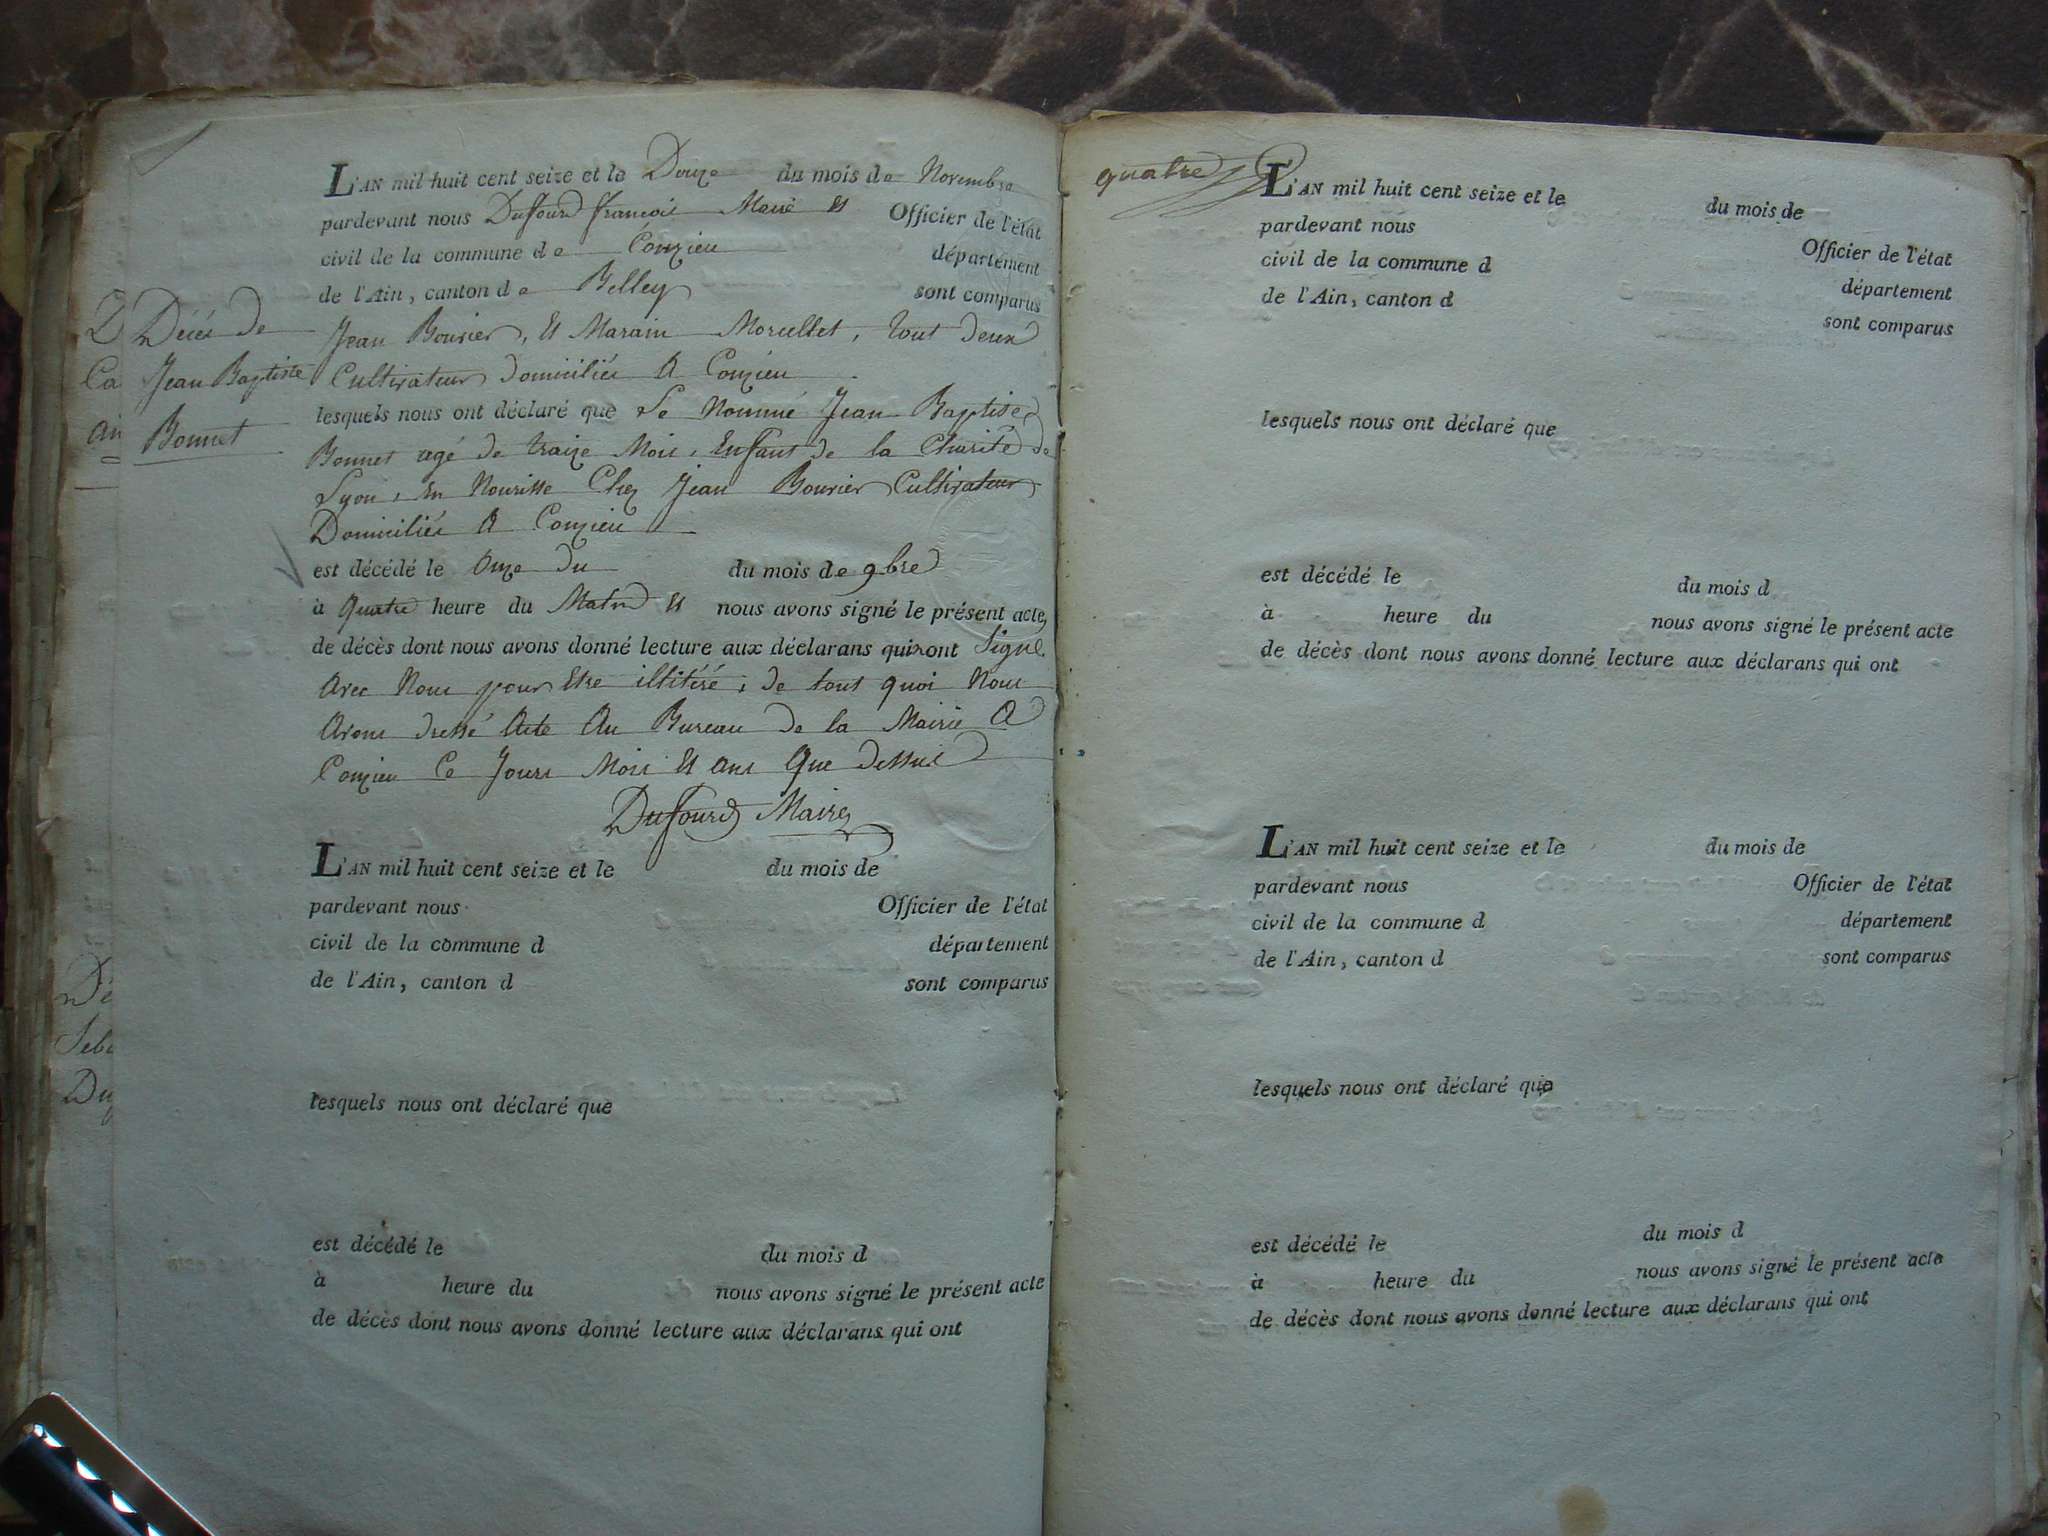 L'AN mil huit cent seize et le Douze du mois de Novembre
pardevant nous Duffourd françois Maire et Officier de l'état
civil de la commune de Conzieu département
de l'Ain, canton de Belley sont comparus
Jean Bouvier, et Marain Morcellet, tout deux
Cultivateur domiciliés a Conzieu
lesquels nous ont déclaré que le Nommé Jean Baptise
Bonnet agé de traize Mois, enfant de la Charité de
Lyon, en Nourisse Chez Jean Bouvier Cultivateur
Domiciliés A Conzieu
est décédé le onze du du mois de 9bre
à quatre heure du Matin et nous avons signé le présent acte,
de décès dont nous avons donné lecture aux déclarans qui ont Signé
Avec Nous pour etre illitéré ; de tout quoi Nous
Avons dressé Acte Au Bureau de la Mairie A
Conzieu Ce Jours Mois et ans que dessus
Duffourd Maire
Décés de
Jean Baptiste
Bonnet
Ca
an
Dé
Seb
Du
L'AN mil huit cent seize et le du mois de
pardevant nous Officier de l'état
civil de la commune d département
de l'Ain, canton d sont comparus
lesquels nous ont déclaré que
est décédé le du mois d
à heure du nous avons signé le présent acte
de décès dont nous avons donné lecture aux déclarans qui ont
quatre
L'AN mil huit cent seize et le du mois de
pardevant nous Officier de l'état
civil de la commune d département
de l'Ain, canton d sont comparus
lesquels nous ont déclaré que
est décédé le du mois d
à heure du nous avons signé le présent acte
de décès dont nous avons donné lecture aux déclarans qui ont
L'AN mil huit cent seize et le du mois de
pardevant nous Officier de l'état
civil de la commune d département
de l'Ain, canton d sont comparus
lesquels nous ont déclaré que
est décédé le du mois d
à heure du nous avons signé le présent acte
de décès dont nous avons donné lecture aux déclarans qui ont